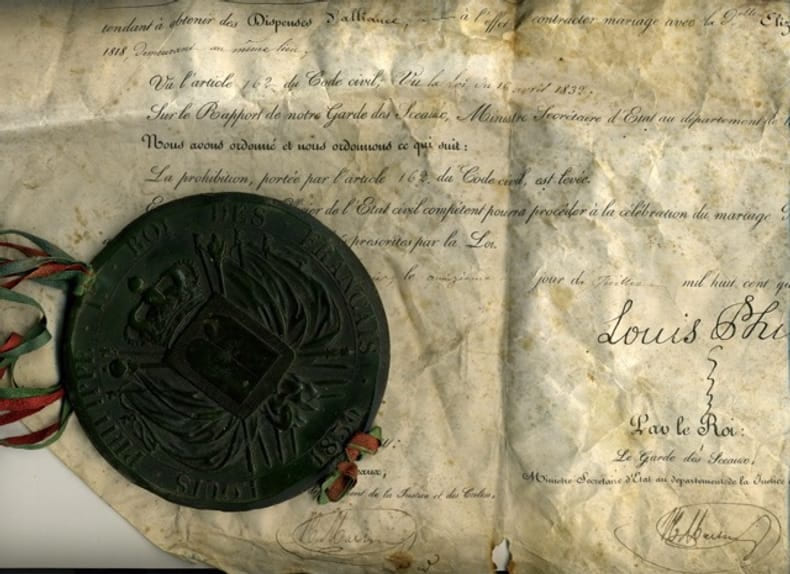 tendant à obtenir des Dispenses d'alliance, à l'effet de contracter mariage avec la Dlle Eliz
1818 demeurant au même lieu;
Vu l'article 162 du Code civil; Vu la loi du 16 avril 1832;
Sur le Rapport de notre Garde des Sceaux, Ministre Secrétaire d'Etat au département de l
Nous avons ordonné et nous ordonnons ce qui suit:
La prohibition, portée par l'article 162 du Code civil, est levée.
de l'Etat civil compétent pourra procéder à la célébration du mariage
prescrites par la Loi.
le quinzième jour de Juillet mil huit cent qu
Louis Phi
Par le Roi:
Le Garde des Sceaux,
Ministre Secrétaire d'Etat au département de la Justice
eaux,
de la Justice et des Cultes,
LOUIS PHILIPPE I. ROI DES FRANÇAIS 1830